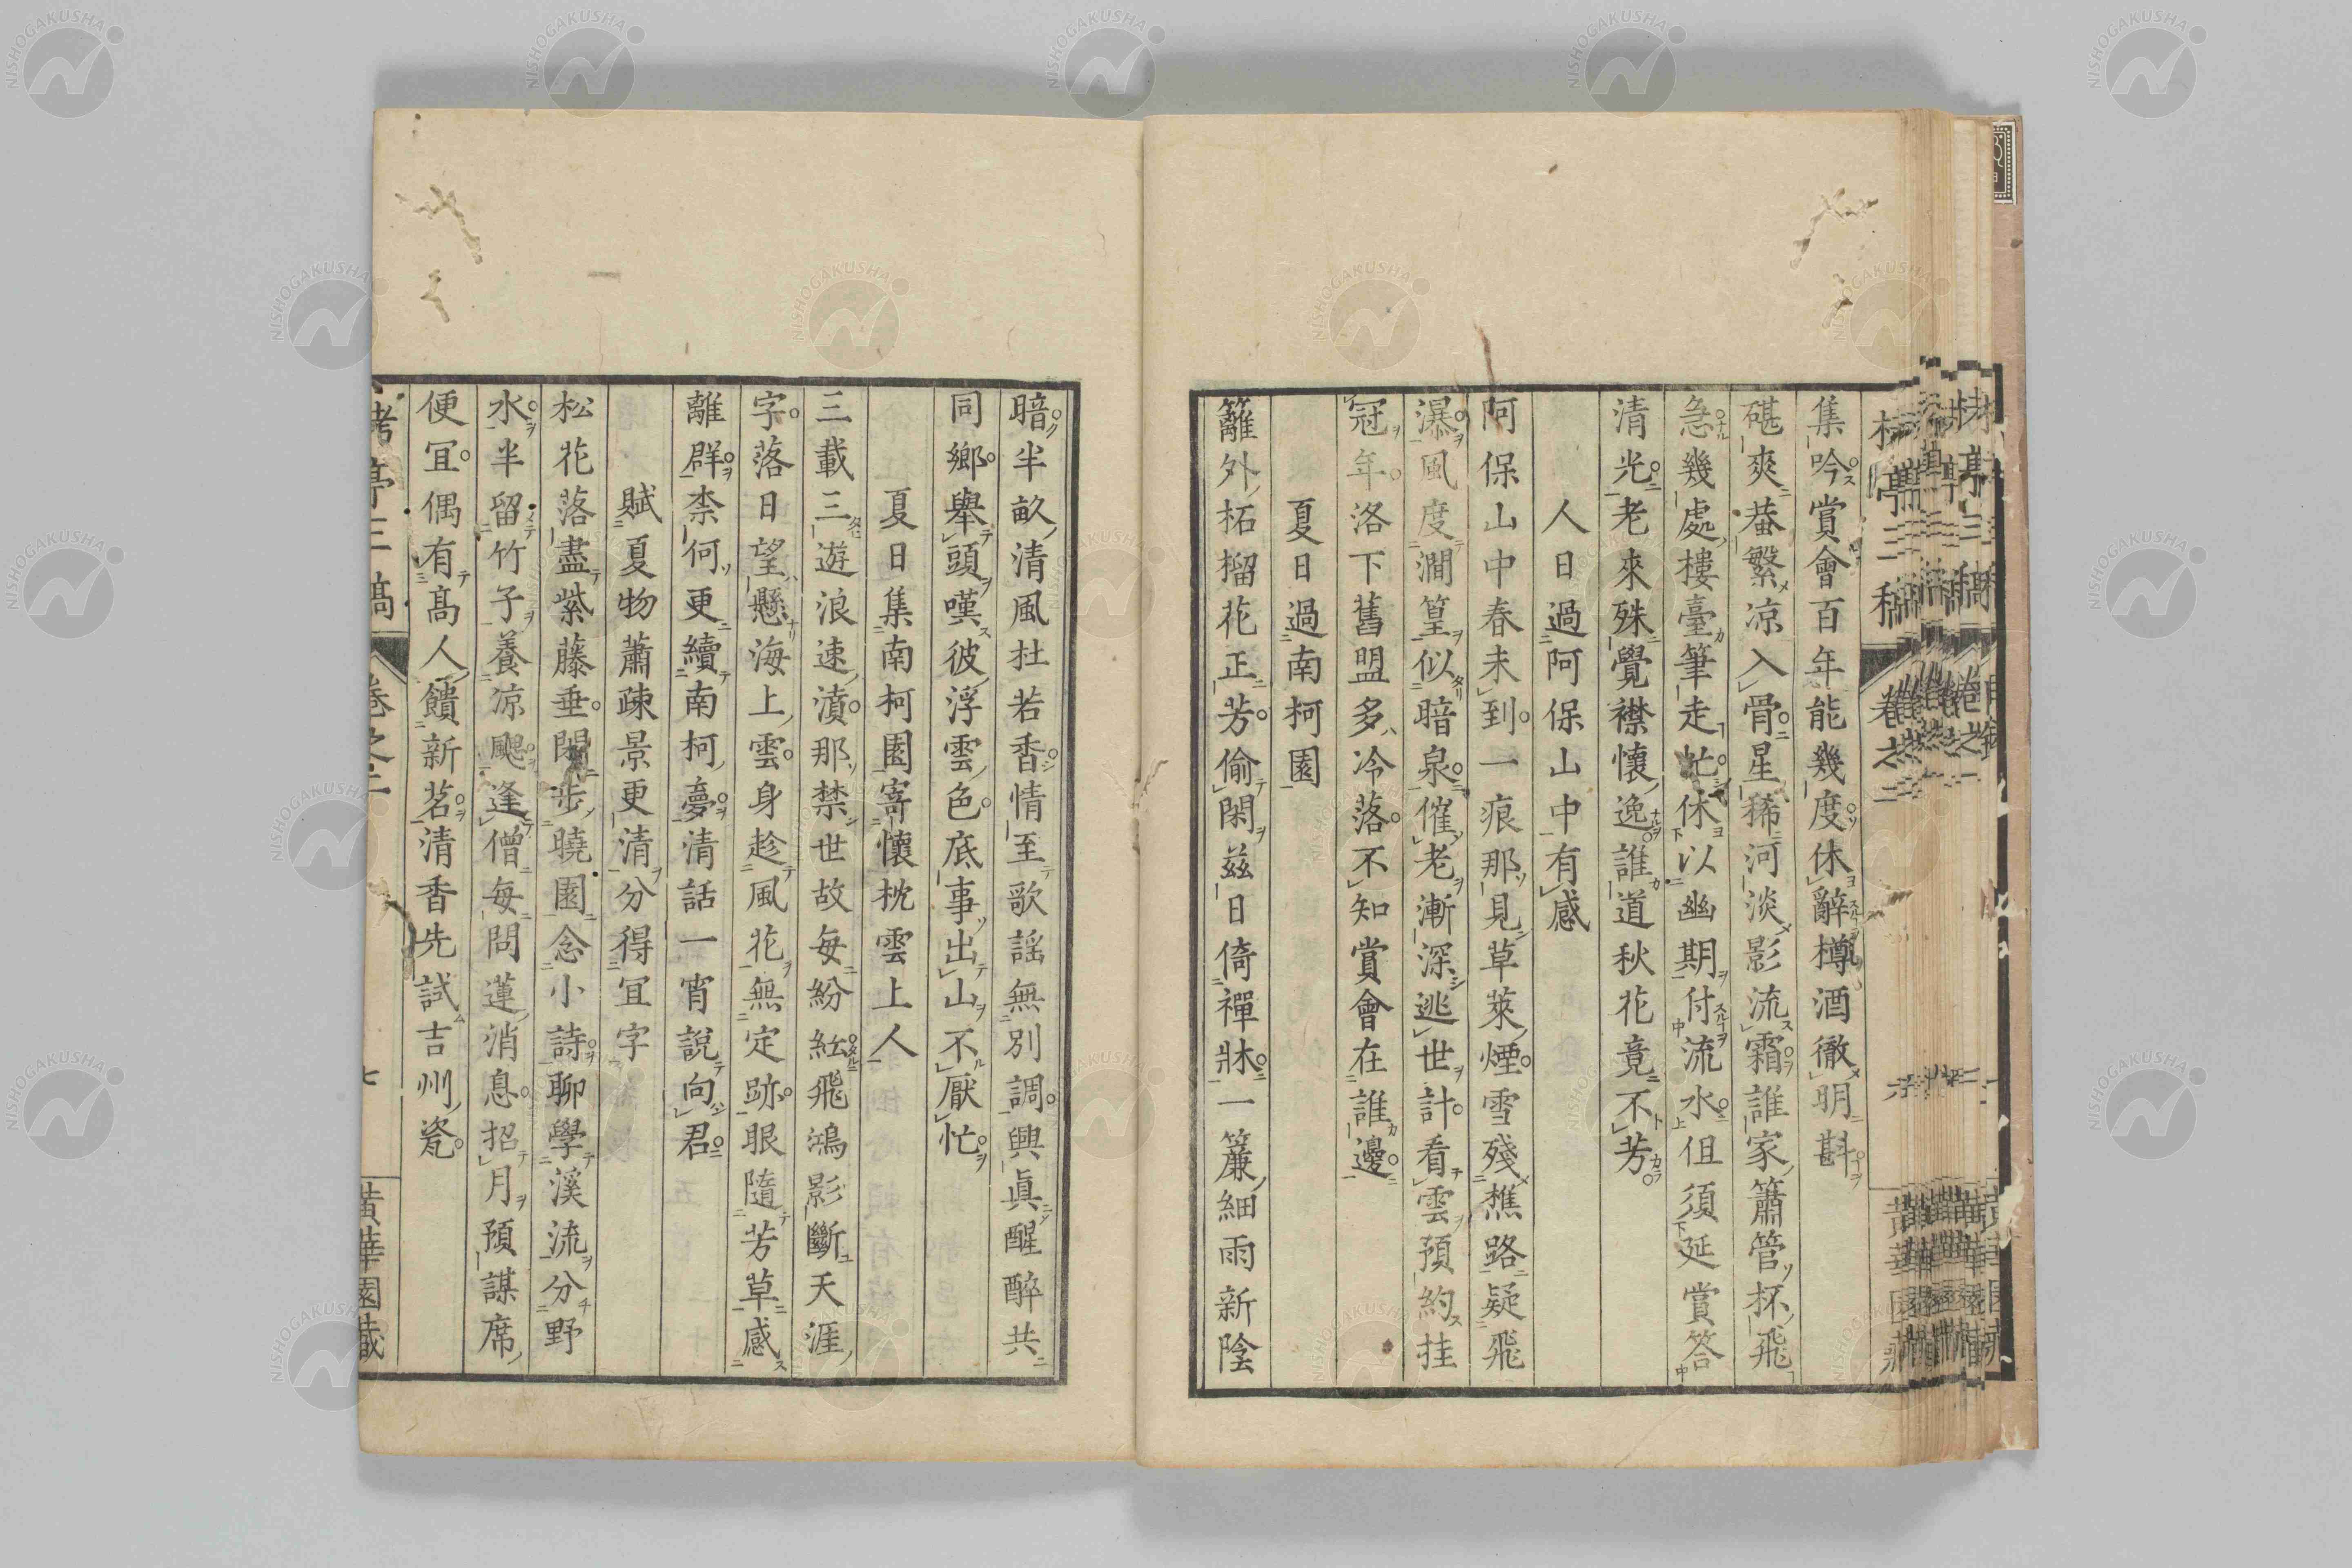 集吟賞會百年能幾度休辭樽酒徹明斟
碪爽蛬繁凉入骨星稀河淡影流霜誰家簫管杯飛
急幾處樓臺筆走忙休以幽期付流水但須延賞答
清光老來殊覺襟懷逸誰道秋花竟不芳
人日過阿保山中有感
阿保山中春未到一痕那見草萊煙雪殘樵路疑飛
瀑風度澗篁似暗泉催老漸深逃世計看雲預約挂
冠年洛下舊盟多冷落不知賞會在誰邊
夏日過南柯園
籬外柘榴花正芳偷閑茲日倚禪牀一簾細雨新陰
暗半畝清風杜若香情至歌謡無別調興眞醒醉共
同鄉舉頭嘆彼浮雲色底事出山不厭忙
夏日集南柯園寄懷枕雲上人
三載三遊浪速濆那禁世故每紛紜飛鴻影斷天涯
字落日望懸海上雲身趁風花無定跡眼隨芳草感
離群柰何更續南柯夢清話一宵說向君
賦夏物蕭疎景更清分得宜字
松花落盡紫藤垂閑步曉園念小詩聊學溪流分野
水半留竹子養凉颸逢僧每問蓮消息招月預謀席
便宜偶有高人饋新茗清香先試吉州瓷
亭三稿 卷之二 七 黃華園藏
NISHOGAKUSHA